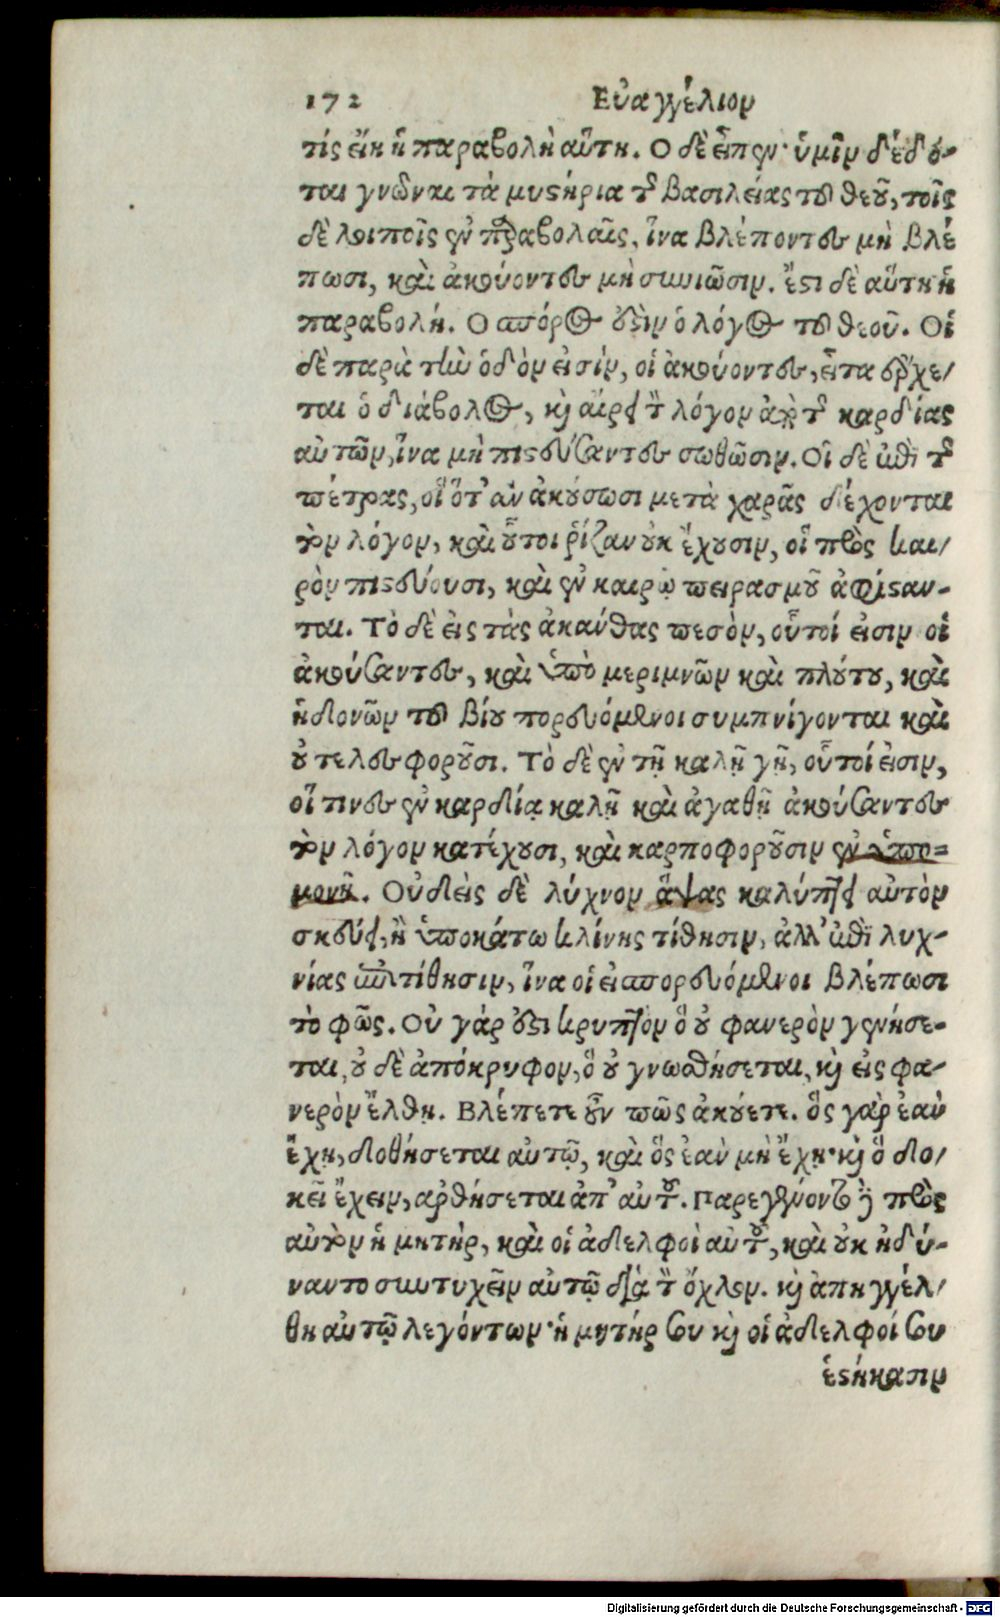 172 Εὐαγγέλιον
τίς εἴη ἡ παραβολὴ αὕτη. Ο δὲ εἶπεν· ὑμῖν δέδο-
ται γνῶναι τὰ μυστήρια τῆς βασιλείας τοῦ θεοῦ, τοῖς
δὲ λοιποῖς ἐν παραβολαῖς, ἵνα βλέποντες μὴ βλέ
πωσι, καὶ ἀκούοντες μὴ συνιῶσιν. ἔστι δὲ αὕτη ἡ
παραβολή. Ο σπόρος ἐστὶν ὁ λόγος τοῦ θεοῦ. Οἱ
δὲ παρὰ τὴν ὁδὸν εἰσίν, οἱ ἀκούοντες, εἶτα ἔρχε/
ται ὁ διάβολος, καὶ αἴρει τὸν λόγον ἀπὸ τῆς καρδίας
αὐτῶν, ἵνα μὴ πιστεύσαντες σωθῶσιν. Οἱ δὲ ἐπὶ τῆς
πέτρας, οἳ ὅτ' ἂν ἀκούσωσι μετὰ χαρᾶς δέχονται
τὸν λόγον, καὶ οὗτοι ῥίζαν οὐκ ἔχουσιν, οἳ πρὸς και/
ρὸν πιστεύουσι, καὶ ἐν καιρῷ πειρασμοῦ ἀφίσταν-
ται. Τὸ δὲ εἰς τὰς ἀκάνθας πεσὸν, οὗτοί εἰσιν οἱ
ἀκούσαντες, καὶ ὑπὸ μεριμνῶν καὶ πλούτου, καὶ
ἡδονῶν τοῦ βίου πορευόμενοι συμπνίγονται καὶ
οὐ τελεσφοροῦσι. Τὸ δὲ ἐν τῇ καλῇ γῇ, οὗτοί εἰσιν,
οἵ τινες ἐν καρδίᾳ καλῇ καὶ ἀγαθῇ ἀκούσαντες
τὸν λόγον κατέχουσι, καὶ καρποφοροῦσιν ἐν ὑπο-
μονῇ. Οὐδεὶς δὲ λύχνον ἅψας καλύπτει αὐτὸν
σκεύει, ἢ ὑποκάτω κλίνης τίθησιν, ἀλλ' ἐπὶ λυχ-
νίας ἐπιτίθησιν, ἵνα οἱ εἰσπορευόμενοι βλέπωσι
τὸ φῶς. Οὐ γάρ ἐστι κρυπτὸν ὃ οὐ φανερὸν γενήσε-
ται, οὐ δὲ ἀπόκρυφον, ὃ οὐ γνωσθήσεται, καὶ εἰς φα-
νερὸν ἔλθῃ. Βλέπετε οὖν πῶς ἀκούετε. ὃς γὰρ ἐὰν
ἔχῃ, δοθήσεται αὐτῷ, καὶ ὃς ἐὰν μὴ ἔχῃ· καὶ ὃ δο/
κεῖ ἔχειν, ἀρθήσεται ἀπ' αὐτοῦ. Παρεγένοντο δὲ πρὸς
αὐτὸν ἡ μητὴρ, καὶ οἱ ἀδελφοὶ αὐτοῦ, καὶ οὐκ ἠδύ-
ναντο συντυχεῖν αὐτῷ διὰ τὸν ὄχλον. καὶ ἀπηγγέλ/
θη αὐτῷ λεγόντων· ἡ μήτηρ σου καὶ οἱ ἀδελφοί σου
ἑστήκασιν
Digitalisierung gefördert durch die Deutsche Forschungsgemeinschaft - DFG